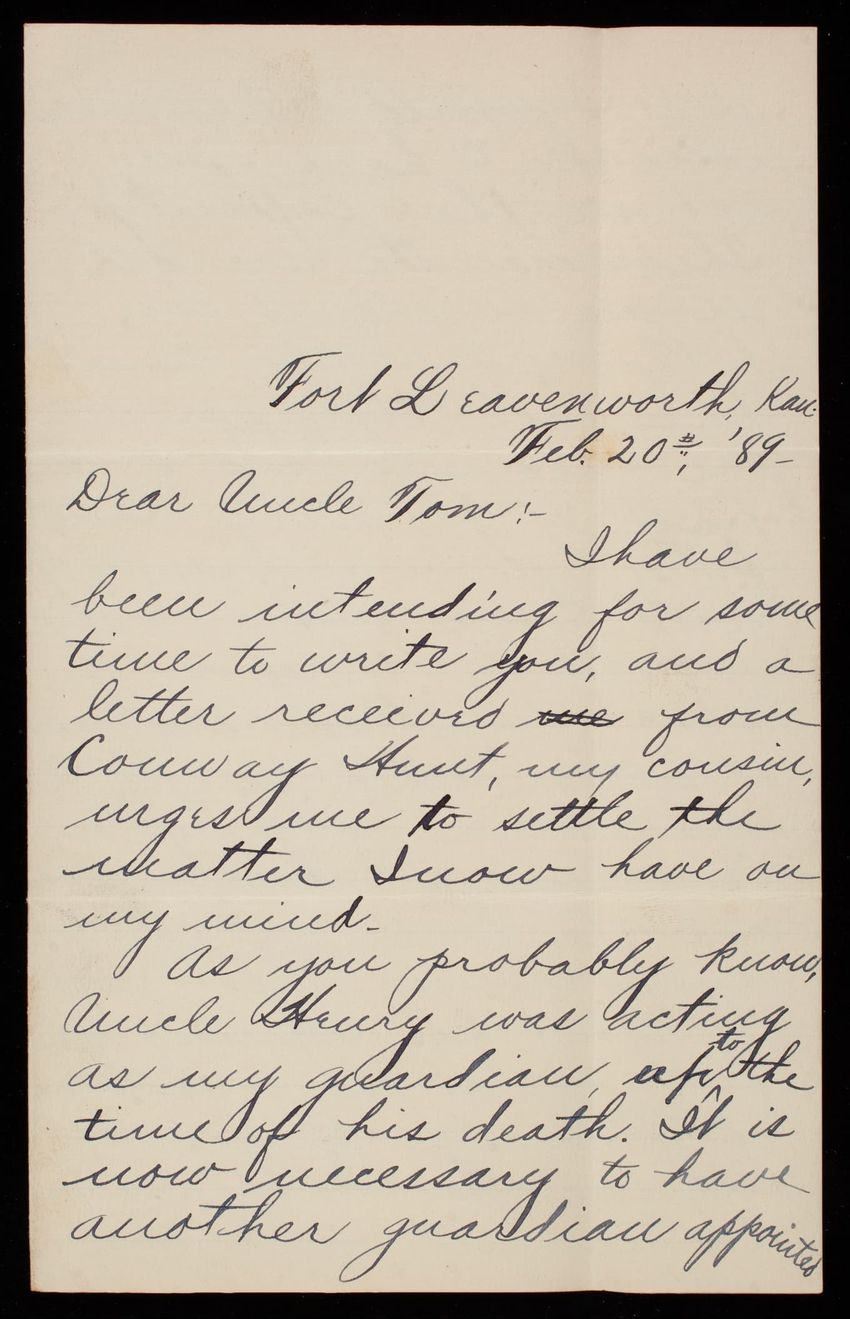 Fort Leavenworth, Kan.
Feb. 20th, '89-
Dear Uncle Tom:-
I have
been intending for some
time to write you, and a
letter received me from
Conway Hunt, my cousin,
urges me to settle the
matter I now have on
my mind-
As you probably know,
Uncle Henry was acting
to
as my guardian, up the
time of his death. It is
now necessary to have
another guardian appointed